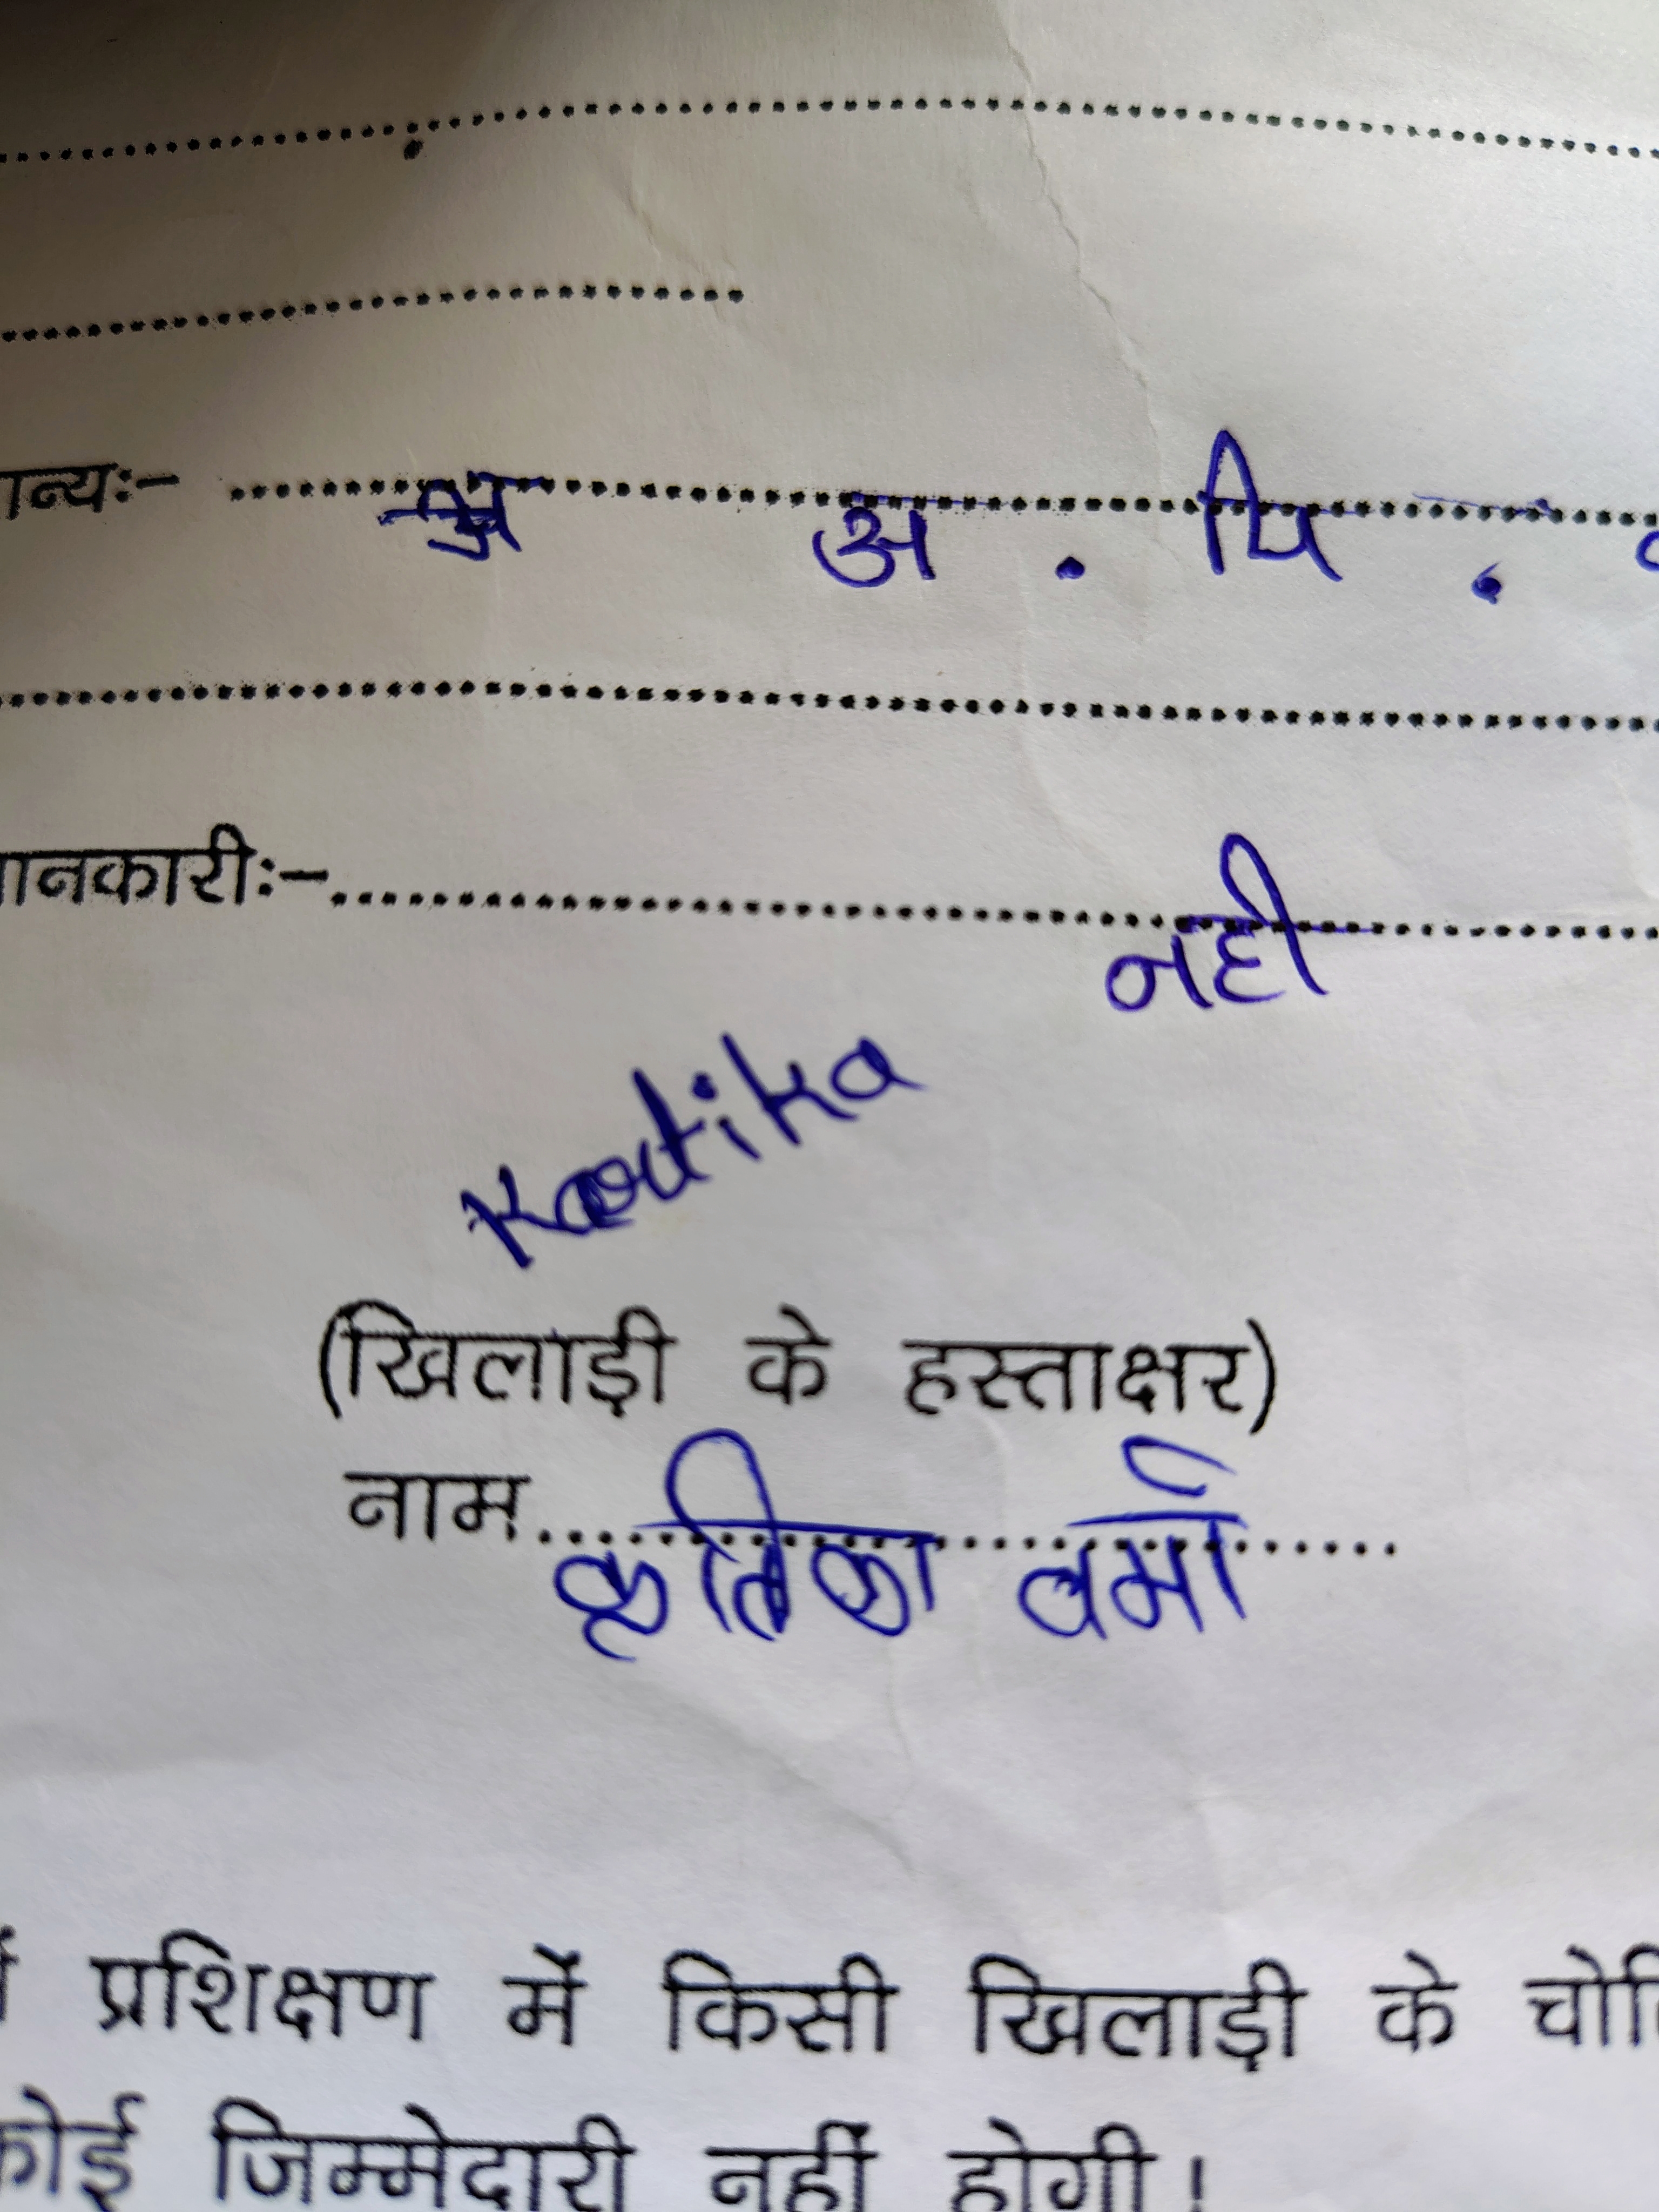 ान्यः- अ . पि .
ानकारीः- नही
Kartika
(खिलाड़ी के हस्ताक्षर)
नाम कृतिका वर्मा
प्रशिक्षण में किसी खिलाड़ी के चोि
कोई जिम्मेदारी नहीं होगी।